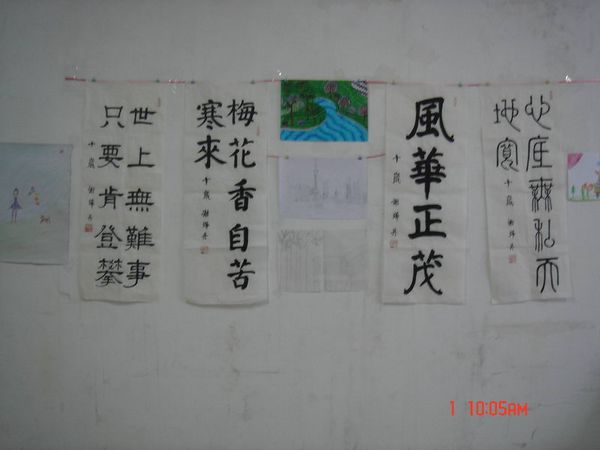 世上無難事
只要肯登攀
十歲
梅花香自苦
寒來
十歲
風華正茂
十歲
心底無私天
地寬
十歲
1 10:05AM